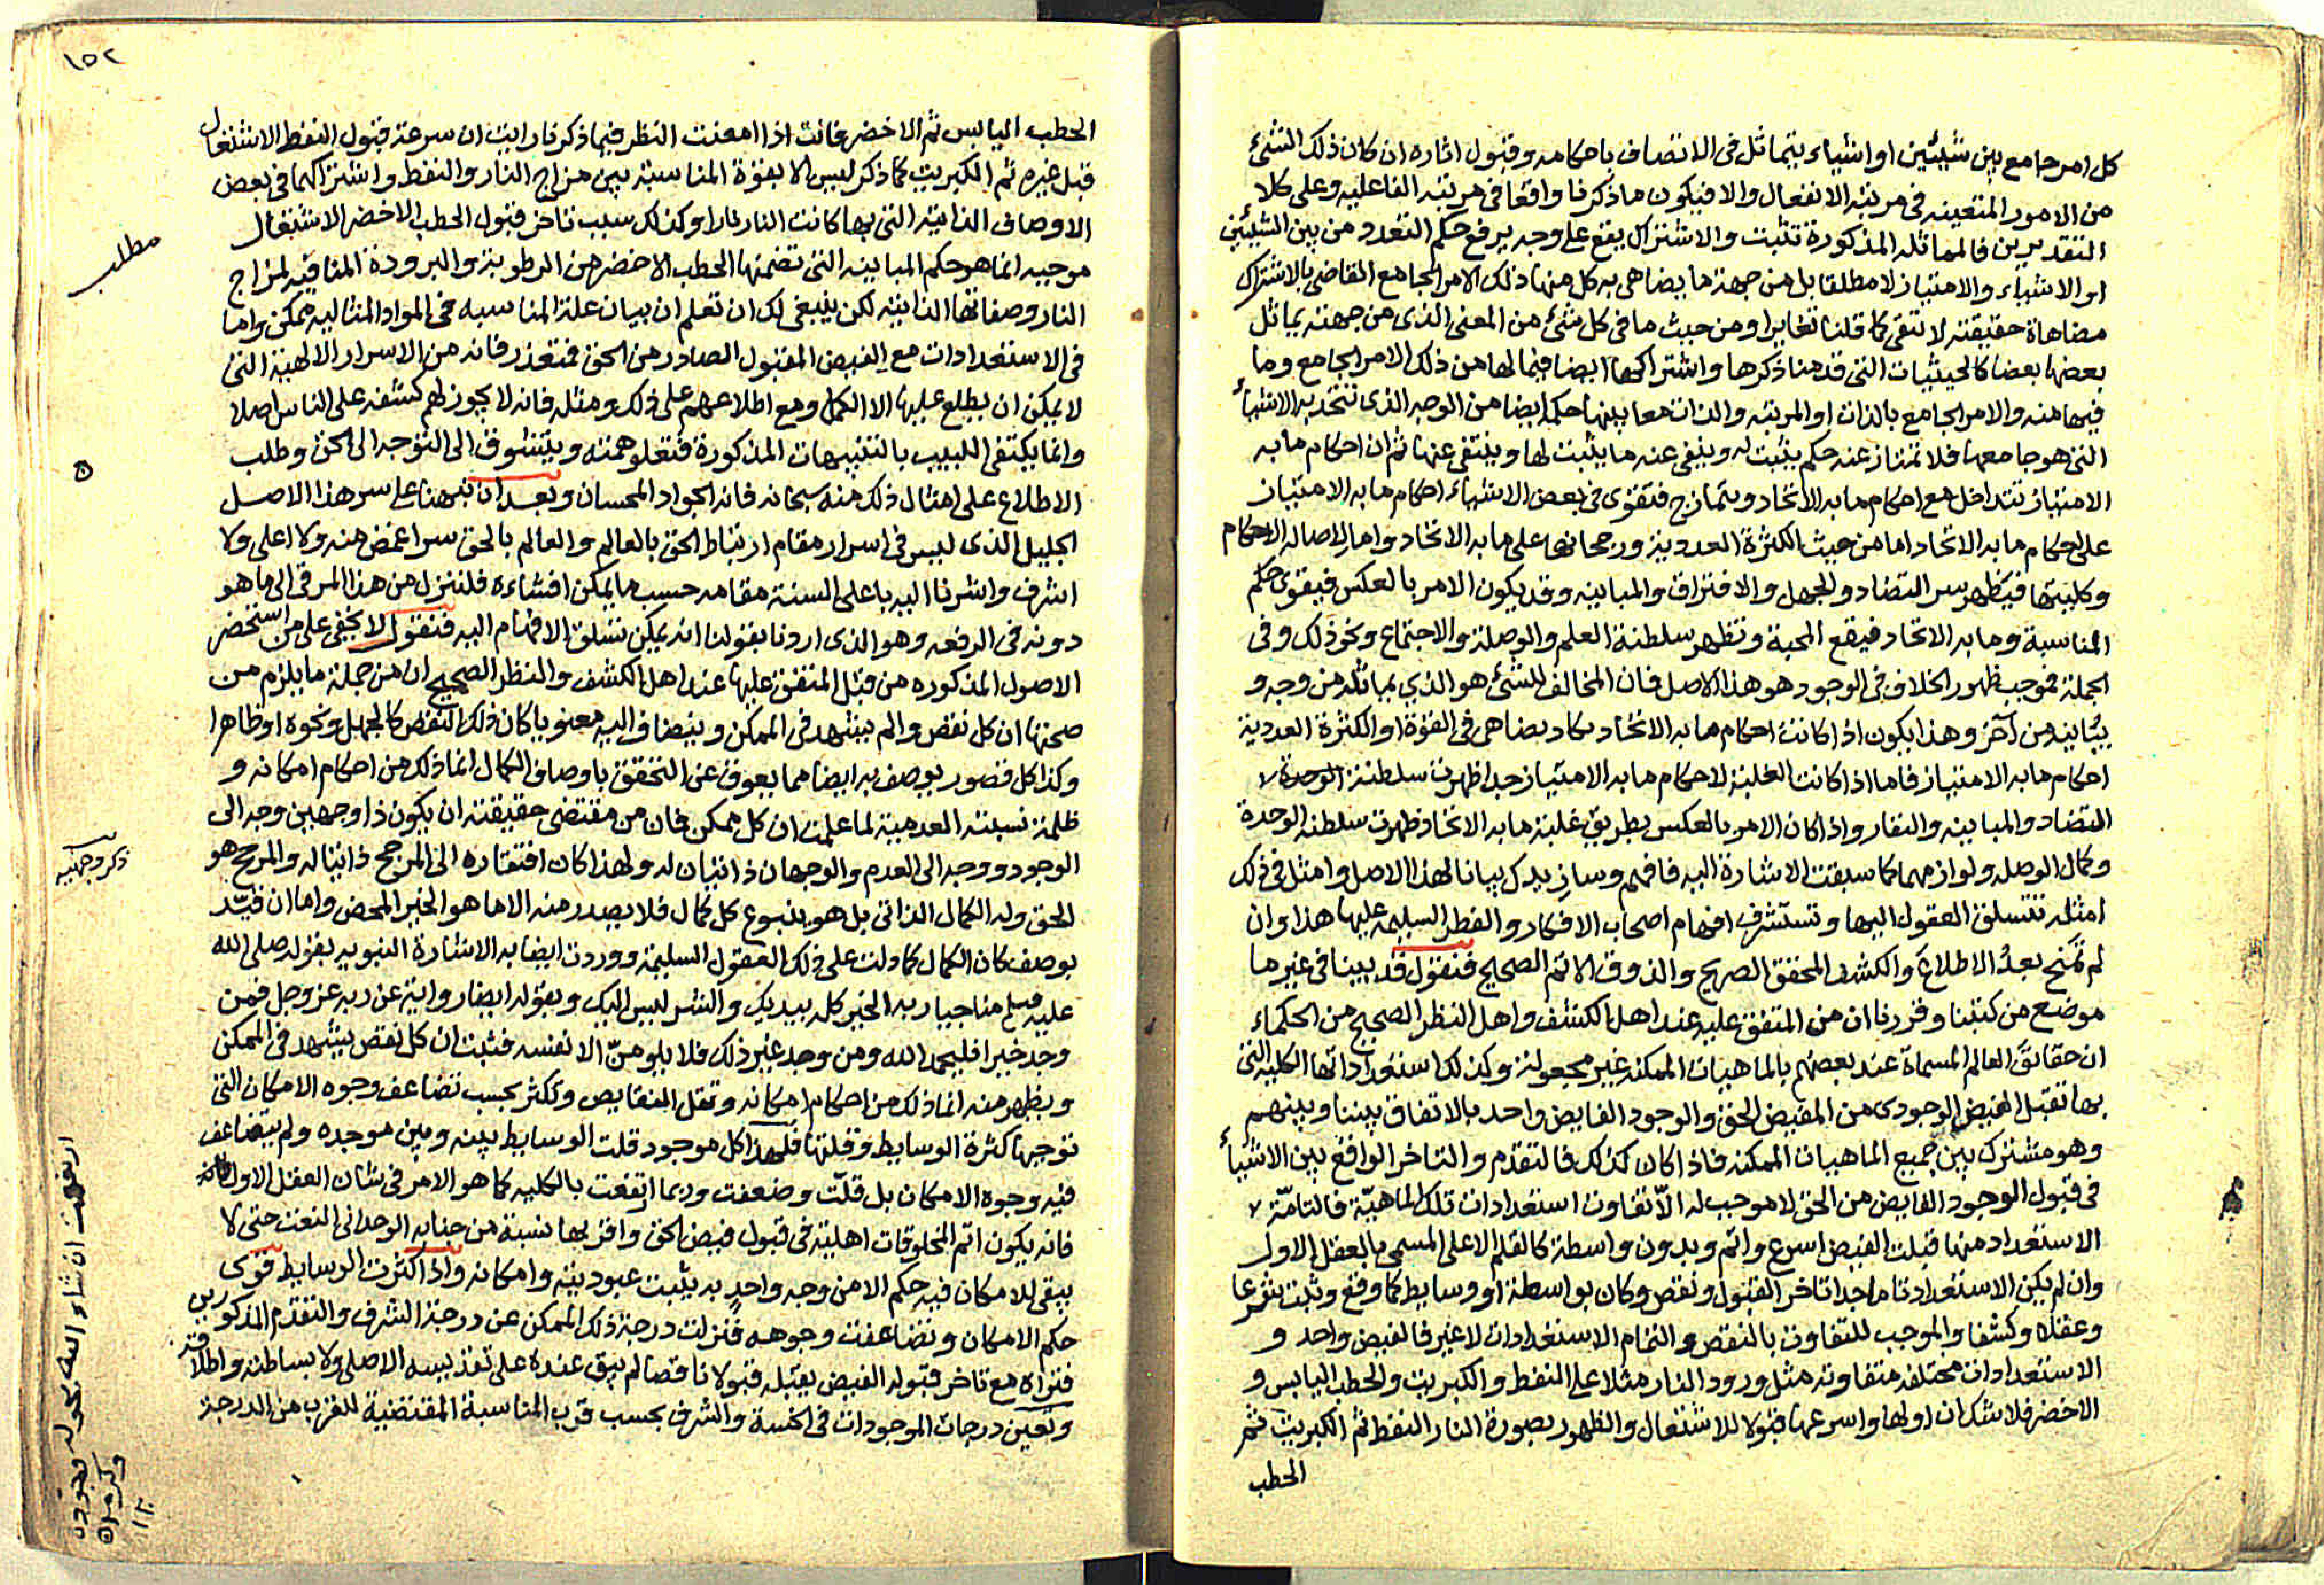 كل امر جامع بين شيئين او اشياء يتماثل في الاتصاف باحكامه وقبول اثاره ان كان ذلك الشئ
من الامور المتعينه في مرتبة الانفعال والا فيكون ما ذكرنا واقعا في مرتبه الفاعليه وعلى كلا
التقديرين فالمماثله المذكورة تثبت والاشتراك يقع على وجه يرفع حكم التعدد من بين الشيئين
او الاشياء والامتياز لا مطلقا بل من جهة ما يضاهي به كل منها ذلك الامر الجامع القاضي بالاشتراك
مضاهاة حقيقته لا تنتفي كما قلنا تغايرا ومن حيث ما في كل شئ من المعنى الذى من جهته يماثل
بعضها بعضا كالحيثيات التي قدمنا ذكرها واشتراكها ايضا فيما لها من ذلك الامر الجامع وما
فيها منه والامر الجامع بالذات او المرتبه والذات معا بينها حكمه ايضا من الوجه الذى تتحد به الاشيأ
التي هو جامعها فلا تمتاز عنه حكم يثبت له وينفى عنه ما يثبت لها وينتفى عنها ثم ان احكام ما به
الامتياز تتداخل مع احكام ما به الاتحاد ويتمازج فتقوى في بعض الاشياء احكام ما به الامتياز
على احكام ما به الاتحاد اما من حيث الكثرة العدديه ورجحانها على ما به الاتحاد واما لاصاله الاحكام
وكليتها فيظهر سر التضاد والجهل والافتراق والمباينه وقد يكون الامر بالعكس فيقوى حكم
المناسبة وما به الاتحاد فيقع المحبة وتظهر سلطنة العلم والوصلة والاجتماع ونحو ذلك وفى
الجملة فموجب ظهور الخلاف في الوجود هو هذا الاصل فان المخالف للشئ هو الذي يماثله من وجه و
يباينه من آخر وهذا يكون اذا كانت احكام ما به الاتحاد يكاد يضاهي في القوة او الكثرة العددية
احكام ما به الامتياز فاما اذا كانت الغلبة لاحكام ما به الامتياز جدا ظهرت سلطنة الوحدة
التضاد والمباينه والنفار واذا كان الامر بالعكس بطريق غلبة ما به الاتحاد ظهرت سلطنه الوحدة
وكمال الوصله ولوازمهما كما سبقت الاشارة اليه فافهم وسازيدك بيانا لهذا الاصل وامثل في ذلك
امثله تتسلق العقول اليها وتستشرف افهام اصحاب الافكار والفطر السليمه عليها هذا وان
لم تمنح بعدُ الاطلاع والكشف المحقق الصريح والذوق الاتم الصحيح فنقول قد بينا في غير ما
موضع من كتبنا وقررنا ان من المتفق عليه عند اهل الكشف واهل النظر الصحيح من الحكماء
ان حقائق العالم المسماة عند بعضهم بالماهيات الممكنه غير مجعولة وكذلك استعداداتها الكليه التي
بها تقبل الفيض الوجودى من المفيض الحق والوجود الفايض واحد بالاتفاق بيننا وبينهم
وهو مشترك بين جميع الماهيات الممكنه فاذا كان كذلك فالتقدم والتاخر الواقع بين الاشيأ
في قبول الوجود الفايض من الحق لا موجب له الّا تفاوت استعدادات تلك الماهيّة فالتامّة
الاستعداد منها قبلت الفيض اسرع واتم وبدون واسطة كالقلم الاعلى المسمى بالعقل الاول
وان لم يكن الاستعداد تاما جدا تاخر القبول ونقص وكان بواسطة او وسايط كما وقع وثبت شرعا
وعقلا وكشفا والموجب للتفاوت بالنقص والتمام الاستعدادات لا غير فالفيض واحد و
الاستعدادات مختلفه متفاوته مثل ورود النار مثلا على النفط والكبريت والحطب اليابس و
الاخضر فلا شك ان اولها واسرعها قبولا للاشتعال والظهور بصورة النار النفط ثم الكبريت ثم
الحطب
١٥٢
الحطب اليابس ثم الاخضر فانت اذا امعنت النظر فيما ذكرنا رايت ان سرعة قبول النفط الاشتعال
قبل غيره ثم الكبريت كما ذكر ليس الا بقوة المناسبة بين مزاج النار والنفط واشتراكهما في بعض
الاوصاف الذاتية التي بها كانت النار نارا وكذلك سبب تاخر قبول الحطب الاخضر الاشتعال
موجبه انما هو حكم المباينه التي تضمنها الحطب الاخضر من الرطوبة والبرودة المنافيه لمزاج
النار وصفاتها الذاتية لكن ينبغي لك ان تعلم ان بيان علة المناسبه في المواد المثاليه ممكن واما
في الاستعدادات مع الفيض المقبول الصادر من الحق فمتعذر فانه من الاسرار الالهية التي
لا يمكن ان يطلع عليها الا الكمل ومع اطلاعهم على ذلك ومثله فانه لا يجوز لهم كشفه على الناس اصلا
وانما يكتفى اللبيب بالتنبيهات المذكورة فتعلو همته ويتشوق الى التوجه الى الحق وطلب
الاطلاع على امثال ذلك منه سبحانه فانه الجواد المحسان وبعد ان نبهنا على سر هذا الاصل
الجليل الذى ليس في اسرار مقام ارتباط الحق بالعالم والعالم بالحق سر اغمض منه ولا اعلى ولا
اشرف واشرنا اليه باعلى السنة مقامه حسب ما يمكن افشاءه فلننزل من هذا المرقى الى ما هو
دونه في الرفعه وهو الذى اردنا بقولنا انه يمكن تسلق الافهام اليه فنقول لا يخفى على من استحضر
الاصول المذكوره من قبل المتفق عليها عند اهل الكشف والنظر الصحيح ان من جملة ما يلزم من
صحتها ان كل نقص والم يشهد في الممكن وينضاف اليه معنويا كان ذلك النقص كالجهل ونحوه او ظاهرا
وكذا كل قصور يوصف به ايضا مما يعوق عن التحقق باوصاف الكمال انما ذلك من احكام امكانه و
ظلمة نسبته العدمية لما علمت ان كل ممكن فان من مقتضى حقيقته ان يكون ذا وجهين وجه الى
الوجود ووجه الى العدم والوجهان ذاتيان له ولهذا كان افتقاره الى المرجح ذاتيا له والمرجح هو
الحق وله الكمال الذاتى بل هو ينبوع كل كمال فلا يصدر منه الا ما هو الخير المحض واما ان قيّد
بوصف كان الكمال كما دلت على ذلك العقول السليمة ووردت ايضا به الاشارة النبويه بقوله صلى الله
عليه وسلم مناجيا ربه الخير كله بيديك والشر ليس اليك وبقوله ايضا رواية عن ربه عز وجل فمن
وجد خيرا فليحمد الله ومن وجد غير ذلك فلا يلومنّ الا نفسه فثبت ان كل نقص يشهد في الممكن
ويظهر منه انما ذلك من احكام امكانه وتقل النقايص وتكثر بحسب تضاعف وجوه الامكان التي
توجبها كثرة الوسايط وقلتها فلهذا كل موجود قلت الوسايط بينه وبين موجده ولم يتضاعف
فيه وجوه الامكان بل قلّت وضعفت وربما ارتفعت بالكليه كما هو الامر في شان العقل الاول فانه
فانه يكون اتم المخلوقات اهلية في قبول فيض الحق واقربها نسبة من جنابه الوحدانى النعت حتى لا
يبقى للامكان فيه حكم الا من وجه واحد به يثبت عبوديته وامكانه واذا كثرت الوسايط قوى
حكم الامكان وتضاعفت وجوهه فنزلت درجة ذلك الممكن عن درجة الشرف والتقدم المذكورين
فتراه مع تاخر قبوله الفيض يقبله قبولا ناقصا لم يبق عنده على تقديسه الاصلى ولا بساطته واطلاقه
وتعين درجات الموجودات في الخسة والشرف بحسب قرب المناسبة المقتضية للقرب من الدرجة
مطلب
ان شاء الله بحوله وقوته
وكرمه